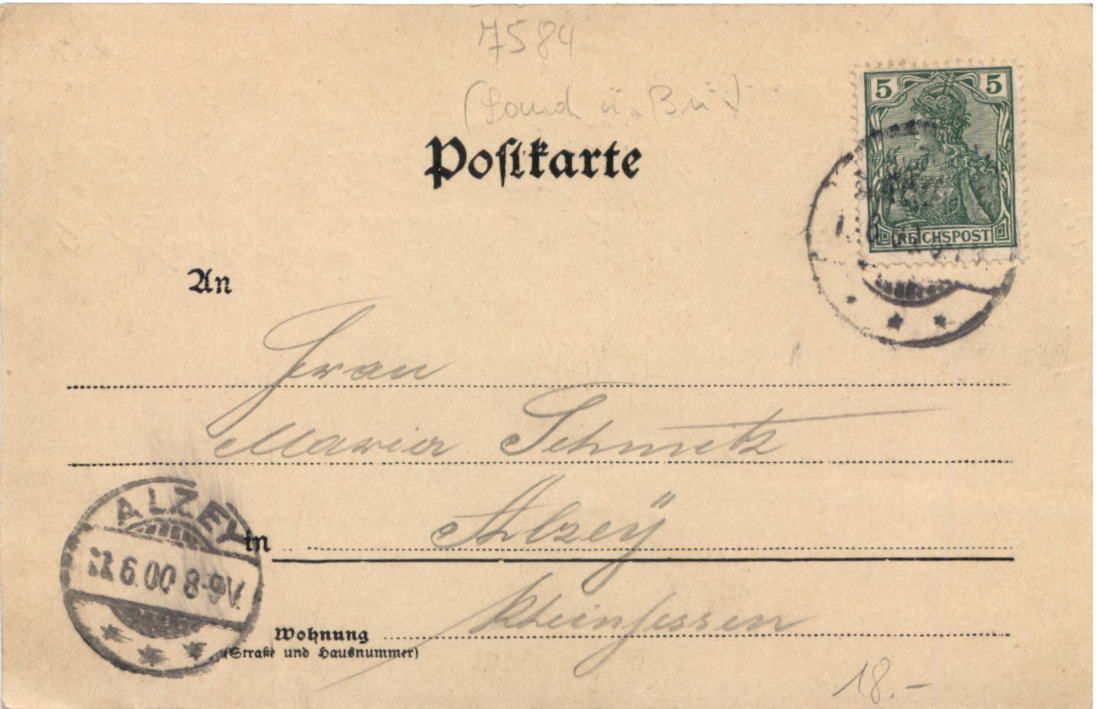 7584
5 5
REICHSPOST
Postkarte
An
Frau
Maria Schmitz
Alzey
ALZEY
6.00 8-9V.
in
Rheinhessen
Wohnung
(Straße und Hausnummer)
18.-